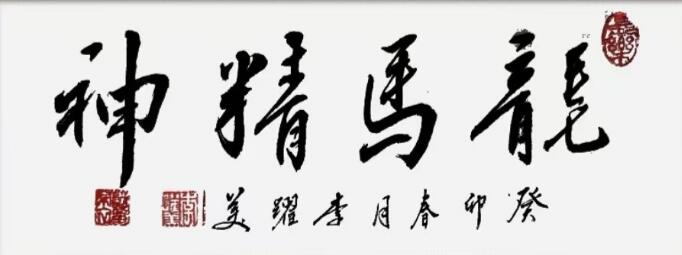 龍馬精神
癸卯春月李耀美